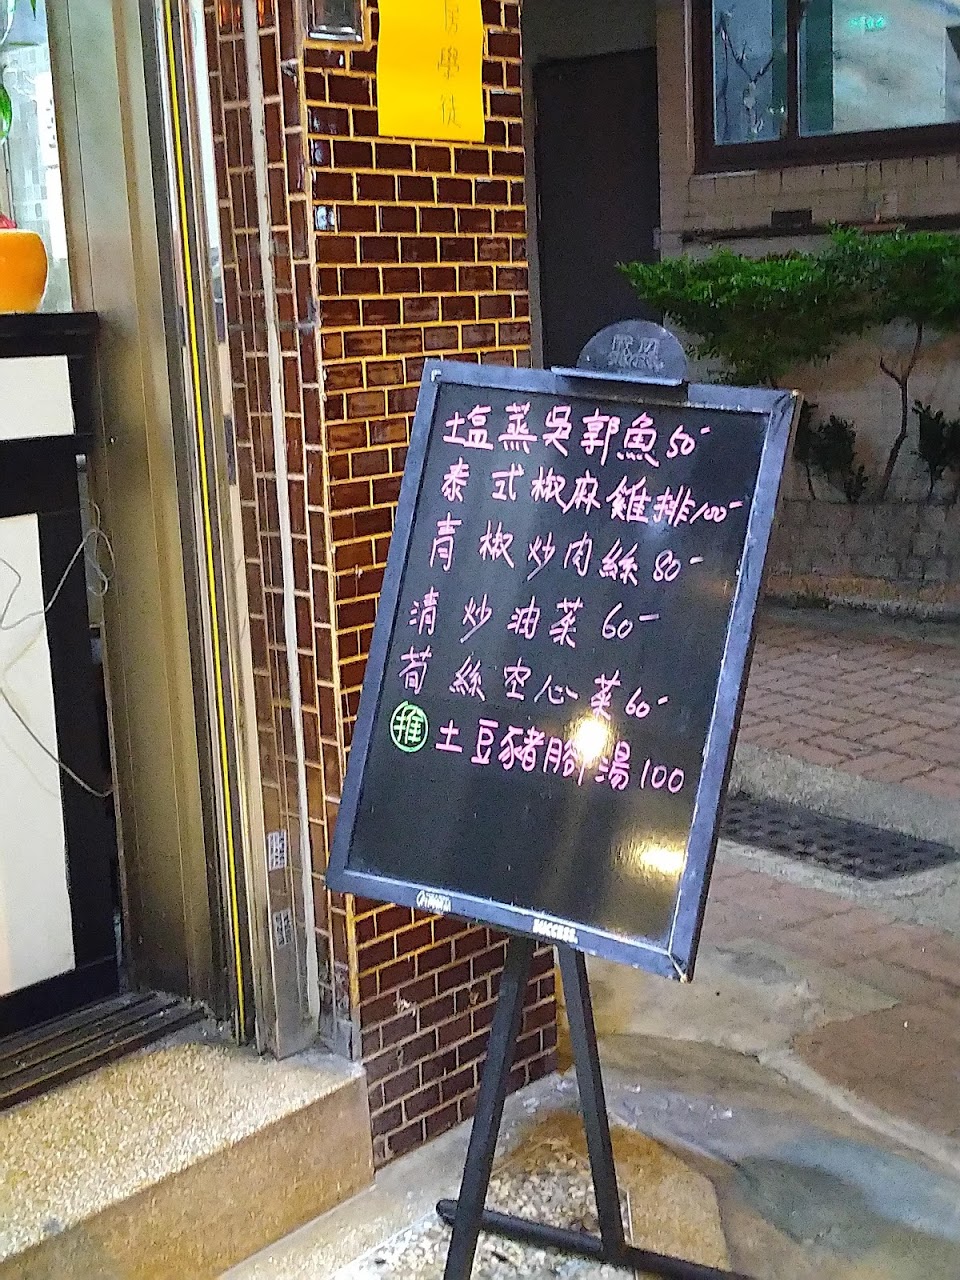 房學徒
塩蒸吳郭魚50-
泰式椒麻雞排100-
青椒炒肉絲80-
清炒油菜60-
荀絲空心菜60-
推 土豆豬腳湯100
SUCCESS